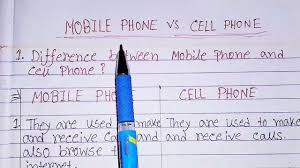 MOBILE PHONE VS CELL PHONE
1. Difference between Mobile Phone and
Cell Phone?
MOBILE PHONE CELL PHONE
1 They are used to make They are used to make
and receive and and receive calls.
also browse
internet.